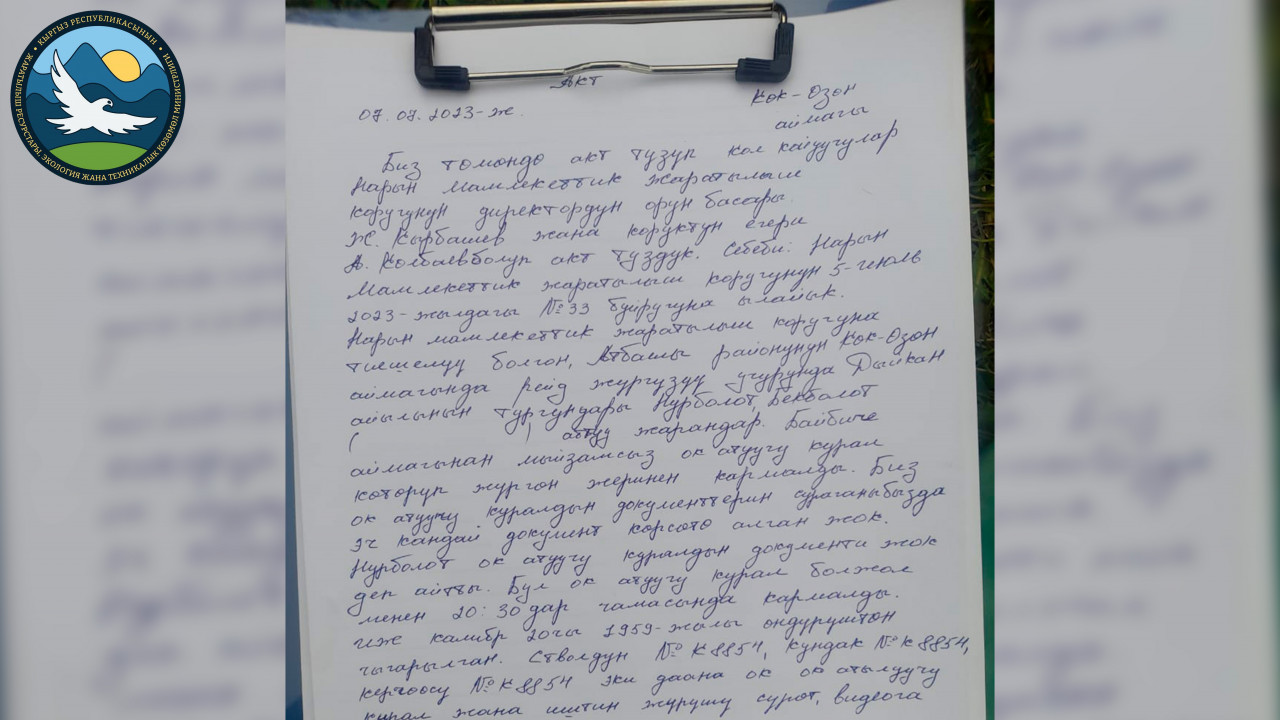 • КЫРГЫЗ РЕСПУБЛИКАСЫНЫН •
ЖАРАТЫЛЫШ РЕСУРСТАРЫ, ЭКОЛОГИЯ ЖАНА ТЕХНИКАЛЫК КӨЗӨМӨЛ МИНИСТРЛИГИ
Акт
07.07.2023-ж.
Көк-Өзөн
аймагы
Биз төмөндө акт түзүп кол коюучулар
Нарын мамлекеттик жаратылыш
коругунун директордун орун басары
Ж. Кырбашев жана коруктун егери
А. Колбаев болуп акт түздүк. Себеби: Нарын
Мамлекеттик жаратылыш коругунун 5-июль
2023-жылдагы №33 буйругуна ылайык.
Нарын мамлекеттик жаратылыш коругуна
тиешелүү болгон, Атбашы районунун Көк-Өзөн
аймагында рейд жүргүзүү учурунда Дыйкан
айылынын тургундары Нурболот, Бекболот
( ) аттуу жарандар. Байбиче
аймагынан мыйзамсыз ок атуучу курал
көтөрүп жүргөн жеринен кармалды. Биз
ок атуучу куралдын документтерин сураганыбызда
эч кандай документ көрсөтө алган жок.
Нурболот ок атуучу куралдын документи жок
деп айтты. Бул ок атуучу курал болжол
менен 20:30 дар чамасында кармалды.
иж калибр 20чы 1959-жылы өндүрүштөн
чыгарылган. Стволдун №К8854, кундак №К8854,
№К8854 эки даана ок ок атылуучу
курал жана иштин жүрүшү сүрөт, видеого